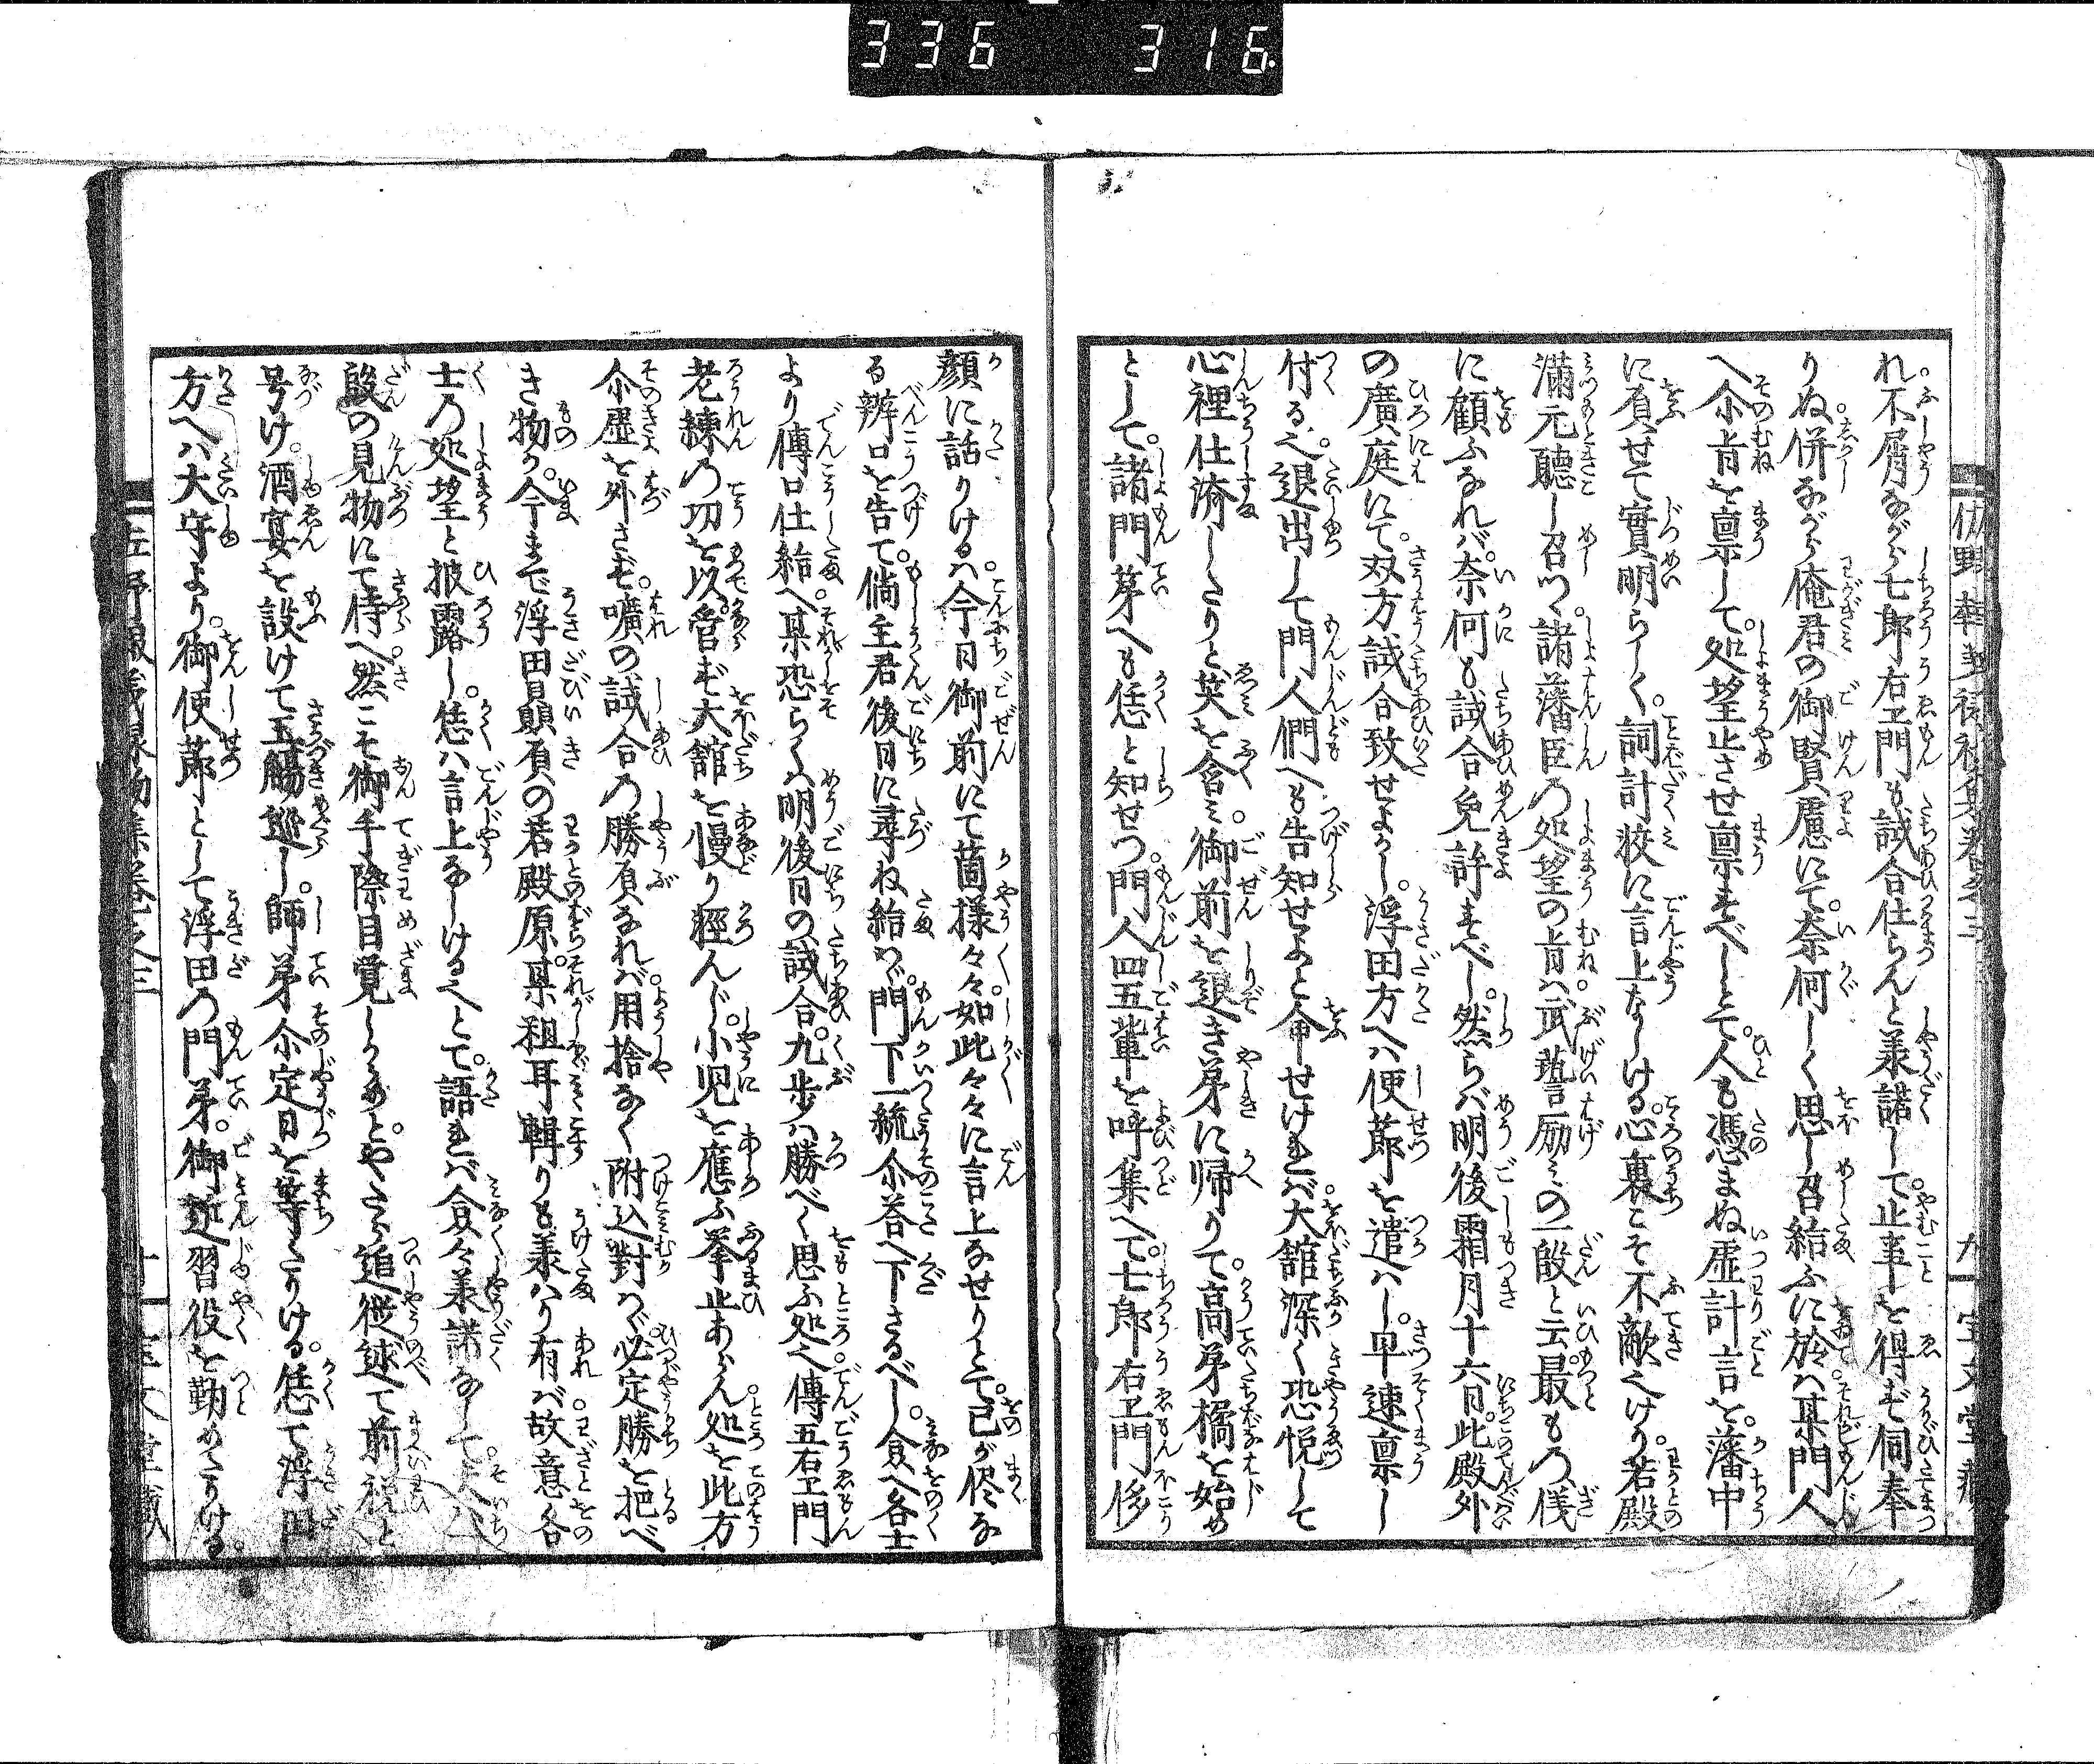 336 316
れ。不屑ながら七郎右ヱ門も試合仕らんと承諾して。止事を得ず伺奉
りぬ。併ながら俺君の御賢慮にて。奈何しく思し召給ふに於は。某門人
へ尓旨を稟して。処望止させ稟すべしとて。人も憑まぬ虚計言を。藩中
に負せて實明らしく。詞計狡に言上なしける。心裏こそ不敵也けり。若殿
満元聽し召つ。諸藩臣の処望の旨は。武藝励みの一段と云。最もの儀
に顧ふなれば。奈何にも試合免許すべし。然らば明後霜月十六日。此殿外
の廣庭にて。双方試合致せよかし。浮田方へは使節を遣はし。早速稟し
付る也。退出して門人們へも告知せよと命せければ。大舘深く恐悦して
心裡仕済したりと英を含み。御前を退き弟に帰りて。高弟橘を始め
として。諸門弟へも恁と知せつ。門人四五輩を呼集へて。七郎右ヱ門侈
顔に話りける は。今日御前にて箇様々々。如此々々に言上なせりとて。己が侭な
る辨口を告て。倘主君後日に尋ね給はゞ。門下一統尓荅へ下さるべし。僉へ各士
より傳口仕給へ。某恐らくは明後日の試合。九歩は勝べく思ふ処也。傳五右ヱ門
老練の功を以。管ず大舘を慢り輕んじ。小児を應ふ挙止あらん。処を此方
尓虚を外さず。曠の試合の勝負なれば。用捨なく附込對はゞ。必定勝を把べ
き物か。今まで浮田贔負の若殿原。某祖耳輯りも承はり有ば。故意各
士の処望と披露し。恁は言上なしける也とて。語れば僉々承諾なして。
殴の見物にて侍へ。然こそ御手際目覚しからめと。やたら追従述て前祝と
号け。酒宴を設けて玉觴巡し。師弟尓定日を等たりける。恁て浮田
方へは大守より。御使節として浮田の門弟。御近習役を勤めたりける。